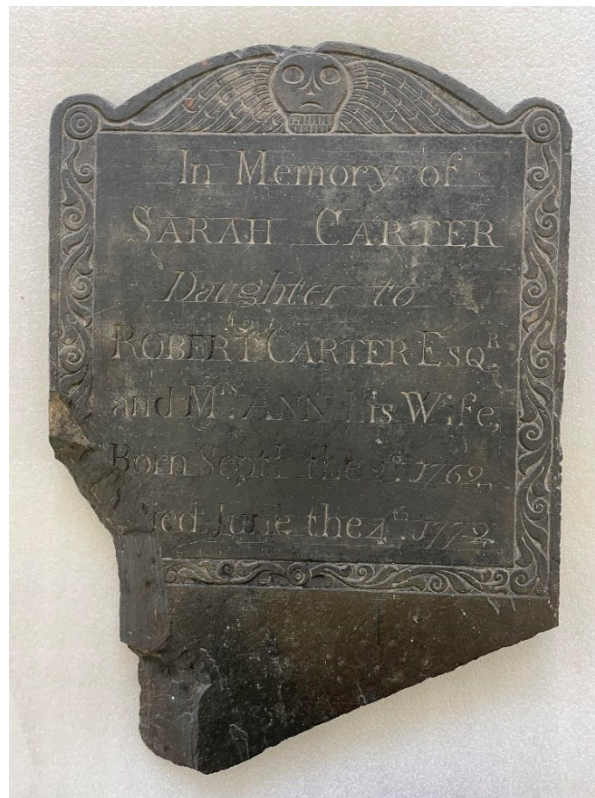 In Memory of
SARAH CARTER
Daughter to
ROBERT CARTER ESQR
and Mrs. ANN his Wife,
Born Septr the 2d. 1769
Died June the 4th. 1772